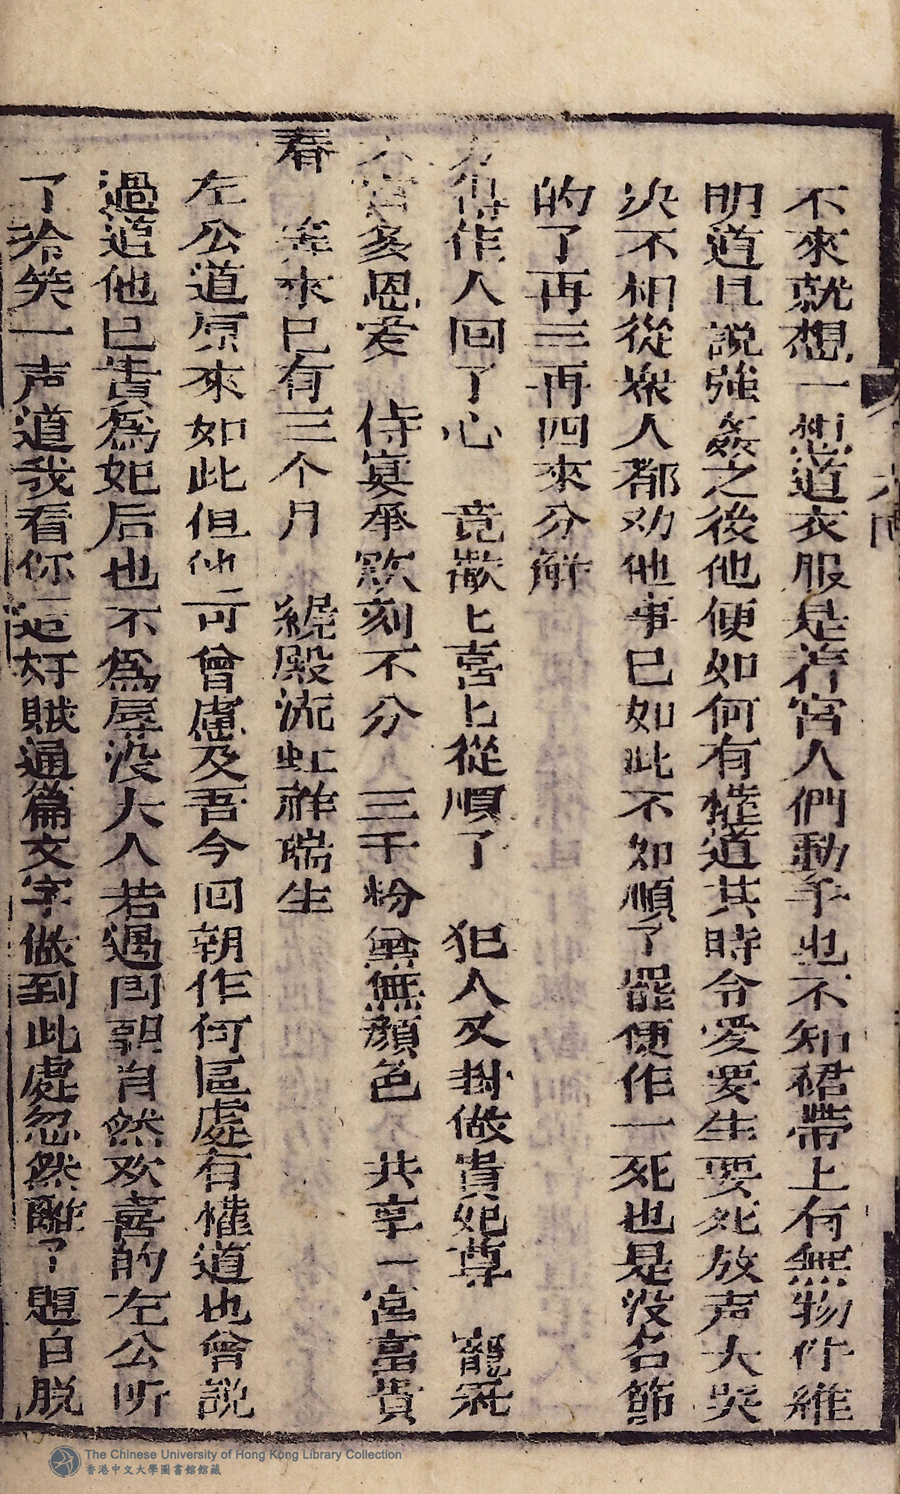 不來就想一想道衣服是着宮人們動手也不知裙帶上有無物件維
明道且說強姦之後他便如何有權道其時令愛要生要死放声大哭
決不相從衆人都劝他事已如此不如順了罷便作一死也是没名節
的了再三再四來分解
作人回了心 竟歡上喜上從順了 犯人又封做貴妃尊 寵冠
宮多恩爱 侍宴奉歡刻不分 三千粉黛無顏色 共享一宮富貴
春 筭來已有三个月 繞殿流虹祥瑞生
左公道原來如此但他可曾慮及吾今囘朝作何區處有權道也曾說
過道他已貴爲妃后也不爲辱没大人若遇囘朝自然欢喜的左公听
了冷笑一声道我看你這奸賊通篇文字做到此處忽然離了題目脱
The Chinese University of Hong Kong Library Collection
香港中文大學圖書館館藏